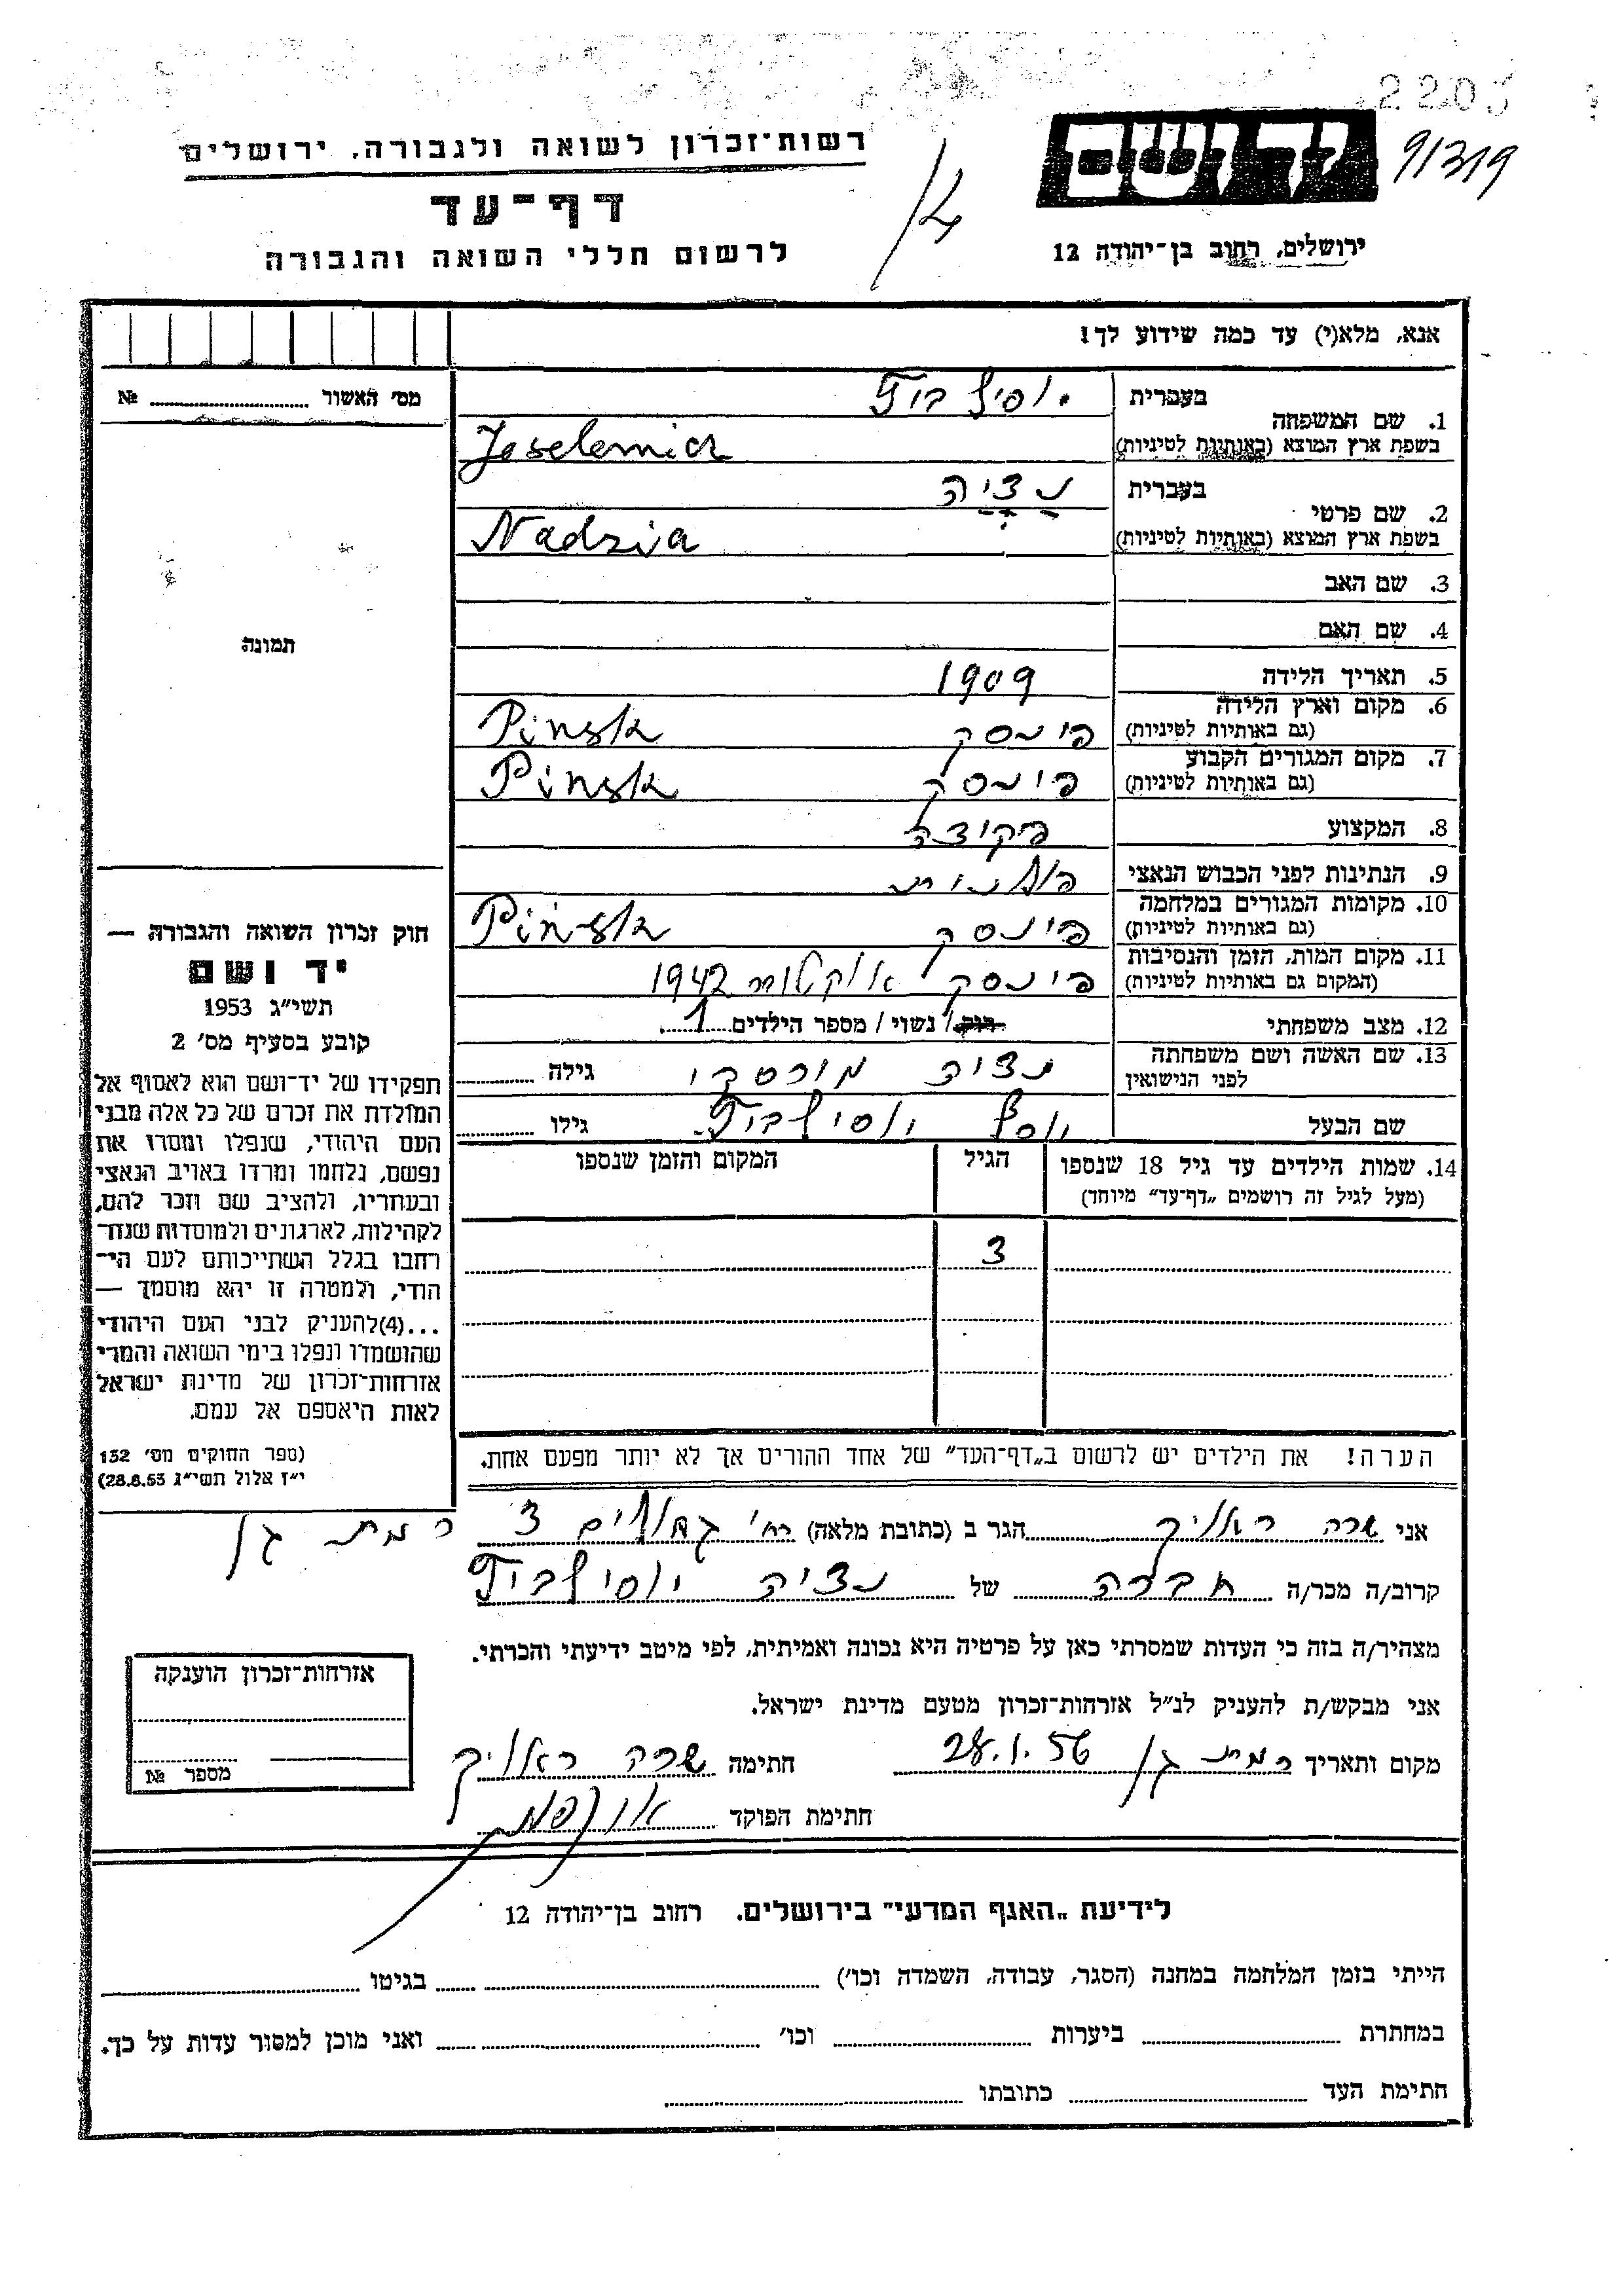 2205
91319
יד ושם
ירושלים, רחוב בן־יהודה 12
רשות־זכרון לשואה ולגבורה, ירושלים
דף־עד
לרשום חללי השואה והגבורה
אנא, מלא(י) עד כמה שידוע לך!
מס׳ האשור № ........
1. שם המשפחה בעברית יוסילביץ
בשפת ארץ המוצא (באותיות לטיניות)
2. שם פרטי בעברית נציה
בשפת ארץ המוצא (באותיות לטיניות) Nadzia
3. שם האב
4. שם האם
תמונה
5. תאריך הלידה 1909
6. מקום וארץ הלידה (גם באותיות לטיניות) פינסק Pinsk
7. מקום המגורים הקבוע (גם באותיות לטיניות) פינסק Pinsk
8. המקצוע פקידה
9. הנתינות לפני הכבוש הנאצי פולנית
10. מקומות המגורים במלחמה (גם באותיות לטיניות) פינסק Pinsk
11. מקום המות, הזמן והנסיבות (המקום גם באותיות לטיניות) פינסק אוקטובר 1942
12. מצב משפחתי רוק/ נשוי / מספר הילדים 1
13. שם האשה ושם משפחתה לפני הנישואין נציה גילה ........
שם הבעל יוסף יוסילביץ גילו ........
14. שמות הילדים עד גיל 18 שנספו
(מעל לגיל זה רושמים „דף־עד” מיוחד)
הגיל
המקום והזמן שנספו
3
הערה! את הילדים יש לרשום ב„דף־העד” של אחד ההורים אך לא יותר מפעם אחת.
חוק זכרון השואה והגבורה —
יד ושם
תשי״ג 1953
קובע בסעיף מס׳ 2
תפקידו של יד־ושם הוא לאסוף אל
המולדת את זכרם של כל אלה מבני
העם היהודי, שנפלו ומסרו את
נפשם, נלחמו ומרדו באויב הנאצי
ובעוזריו, ולהציב שם וזכר להם,
לקהילות, לארגונים ולמוסדות שנח־
רבו בגלל השתייכותם לעם הי־
הודי, ולמטרה זו יהא מוסמך —
...(4)להעניק לבני העם היהודי
שהושמדו ונפלו בימי השואה והמרי
אזרחות־זכרון של מדינת ישראל
לאות היאספם אל עמם.
(ספר החוקים מס׳ 132
י״ז אלול תשי״ג 28.8.53)
אני שרה ראליק הגר ב (כתובת מלאה) רח׳ 3 רמת גן
קרוב/ה מכר/ה חברה של נציה יוסילביץ
מצהיר/ה בזה כי העדות שמסרתי כאן על פרטיה היא נכונה ואמיתית, לפי מיטב ידיעתי והכרתי.
אני מבקש/ת להעניק לנ״ל אזרחות־זכרון מטעם מדינת ישראל.
מקום ותאריך רמת גן 28.1.56 חתימה שרה ראליק
חתימת הפוקד
אזרחות־זכרון הוענקה
מספר №
לידיעת „האגף המדעי” בירושלים, רחוב בן־יהודה 12
הייתי בזמן המלחמה במחנה (הסגר, עבודה, השמדה וכו׳) ........ בגיטו ........
במחתרת ........ ביערות ........ וכו׳ ........ ואני מוכן למסור עדות על כך.
חתימת העד ........ כתובתו ........